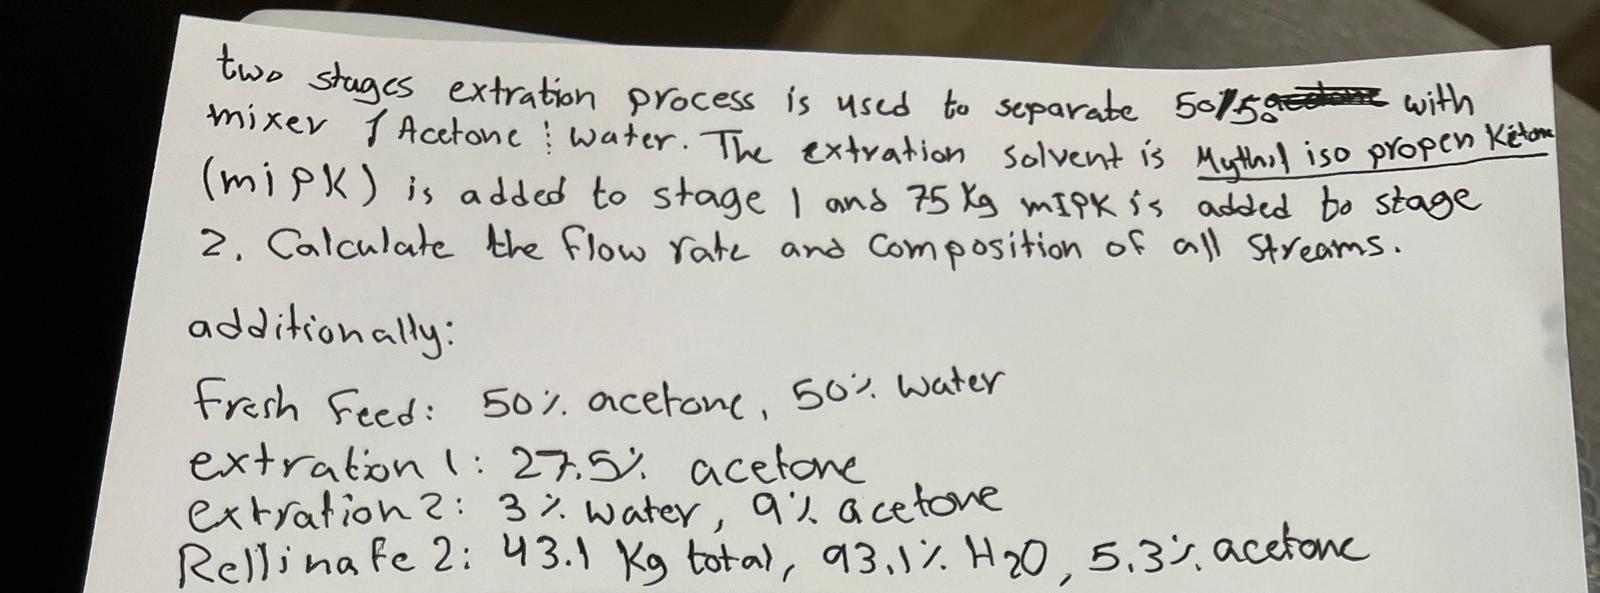 two stages extration process is used to separate 50/50 with
mixer / Acetone : water. The extration solvent is Mythil iso propen Ketone
(mipk) is added to stage 1 and 75 Kg mIPK is added to stage
2. Calculate the flow rate and composition of all streams.
additionally:
fresh feed: 50% acetone, 50% water
extration 1: 27.5% acetone
extration 2: 3% water, 9% acetone
Rellinafe 2: 43.1 Kg total, 93.1% H2O, 5.3% acetone